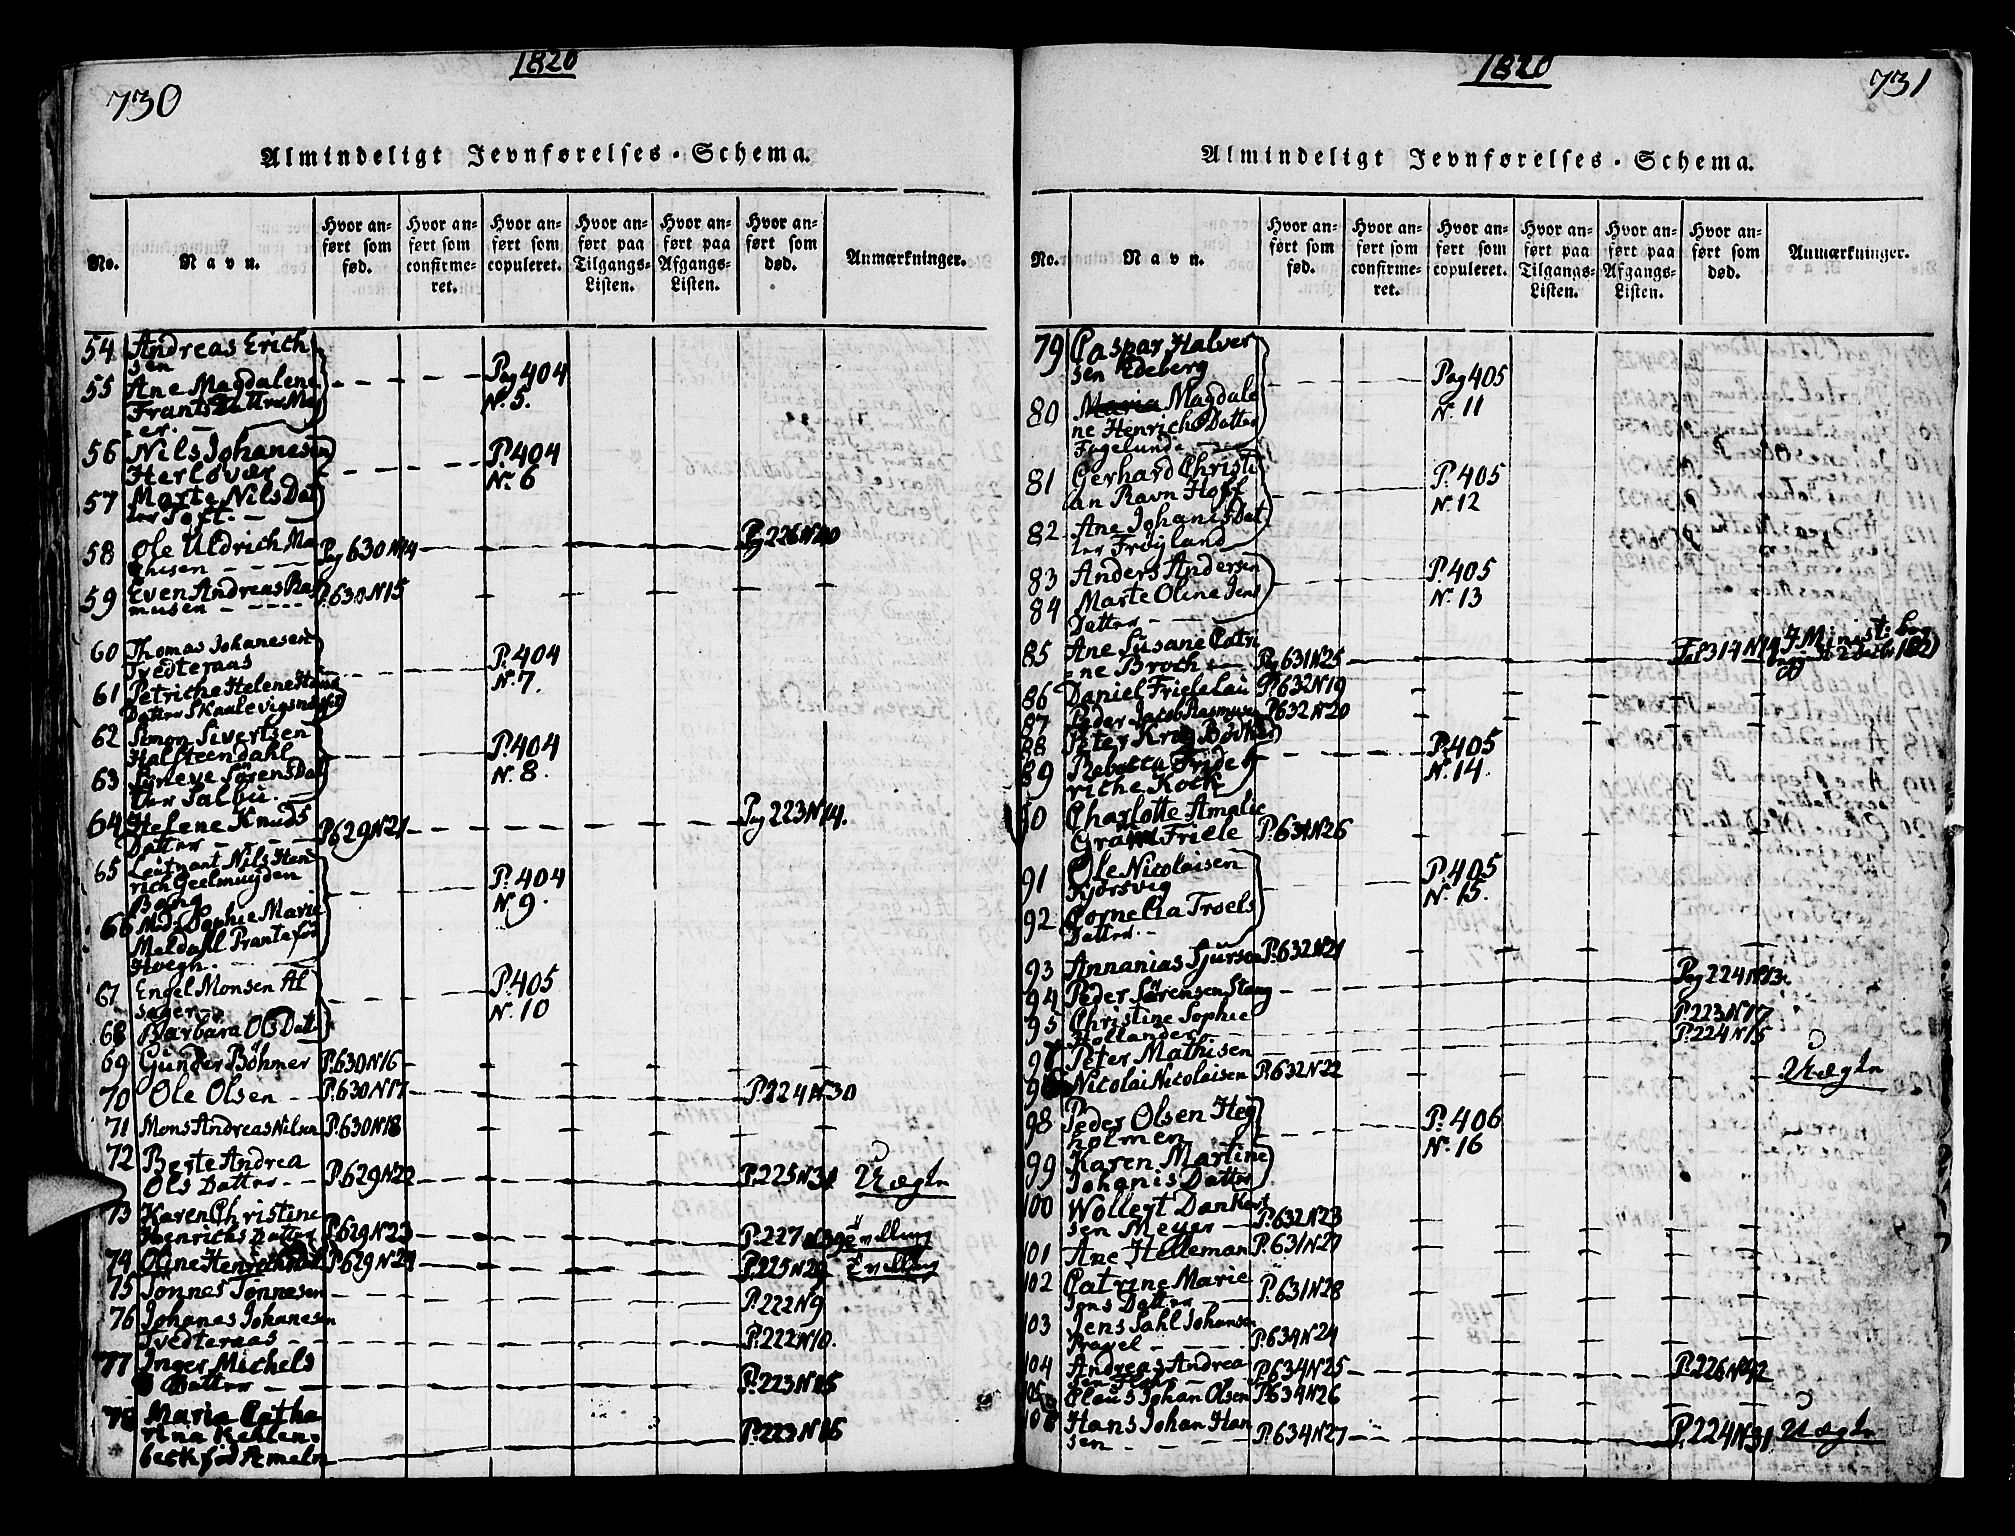 1820
730
Almindeligt Jevnførelses-Schema.
No.
Navn.
Hvor an-
ført som
fød.
Hvor an-
ført som
confirme-
ret.
Hvor an-
ført som
copuleret.
Hvor an-
ført paa
Tilgangs-
Listen.
Hvor an-
ført paa
Afgangs-
Listen.
Hvor an-
ført som
død.
Anmærkninger.
54 Andreas Erich
sen
55 Ane Magdalene Pag 404
Frants Datter May N. 5.
er.
56 Nils Johanesen P. 404
Herløvær N. 6
57 Marte Nils Dat
ter Toft.
58 Ole Uldrich Ma Pag 630 N14 Pag 226 N20
thisen
59 Even Andreas Ras P. 630 N15
musen
60 Thomas Johanesen
Tvedteraas P. 404
61 Petriche Helene Hans N. 7.
Datter Skaalevigsnæsset
62 Simon Sivertsen
Halsteendahl P. 404
63 Syneve Sørens Dat N. 8.
ter Salbu.
64 Helene Knuds P 629 N21 Pag 223 N14.
Datter
65 Leutnant Nils Hen
rich Geelmuyden P. 404
Bøng N 9.
66 Md: Sophie Marie
Meldahl Prante fød
Høegh.
67 Engel Monsen Al P. 405
sager N. 10
68 Barbara Ols Dat
69 Gunder Bøhmer P. 630 N16
70 Ole Olsen P. 630 N17 P. 224 N30
71 Mons Andreas Nilsen P. 630 N18
72 Berte Andrea
Ols Datter P. 629 N22 P. 225 N31 Uægte
73 Karen Christine
Henrichs Datter P. 629 N23 P. 227 N39 Tvilling
74 Oline Henrichs Dat P. 629 N24 P. 225 N29 Tvilling
75 Tønnes Tønnesen P. 222 N9
76 Johanas Johanesen
Tvedteraas P. 222 N10.
77 Inger Michels
Datter P. 223 N15
78 Maria Catha
rina Kehlen- P. 223 N16
beck fød Ameln
1820
731
Almindeligt Jevnførelses-Schema.
No.
Navn.
Hvor an-
ført som
fød.
Hvor an-
ført som
confirme-
ret.
Hvor an-
ført som
copuleret.
Hvor an-
ført paa
Tilgangs-
Listen.
Hvor an-
ført paa
Afgangs-
Listen.
Hvor an-
ført som
død.
Anmærkninger.
79 Caspar Halver
sen Edeberg Pag 405
80 Maria Magdale N. 11
ne Henrichs Datter
Figelunde
81 Gerhard Christi P. 405
an Ravn Hoff N. 12
82 Ane Johanis Dat
ter Frøyland
83 Anders Andersen P. 405
84 Marte Oline Jens N. 13
Datter
85 Ane Susane Catri
ne Broch Pag 631 N25 Fol 314 N14 I Minist:
86 Daniel Friele Lau P. 632 N19
87 Peder Jacob Rasmusen P. 632 N20
88 Peter Krog P. 405
89 Rebecca Fride N. 14.
riche Kock
90 Charlotte Amalie
Gram Friele P. 631 N26
91 Ole Nicolaisen P. 405
Kjørsvig N. 15.
92 Cornelia Troels
Datter.
93 Annanias Sjursen P. 632 N21
94 Peder Sørensen Stang Pag 224 N13.
95 Christine Sophie P. 223 N17
Hollander P. 224 N15
96 Peter Mathisen
97 Nicolai Nicolaisen P. 632 N22 Uægte
98 Peder Olsen Heg P. 406
holmen N. 16
99 Karen Martine
Johanis Datter
100 Wollert Dankert
sen Meyer P. 632 N23
101 Ane Helleman P. 631 N27
102 Catrine Marie
Jens Datter P. 631 N28
103 Jens Dahl Johansen
Kragel P. 634 N24
104 Andreas Andrea P. 634 N25 P. 226 N32
sen
105 Claus Johan Olsen P. 634 N26
106 Hans Johan Han P. 634 N27 P. 224 N31 Uægte
sen